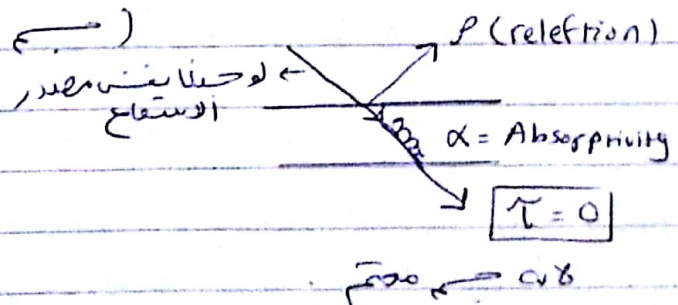 ρ (releftion)
← لو حبينا بنفس مصدر
الاشعاع
α = Absorptivity
τ = 0
لانه جسم معتم